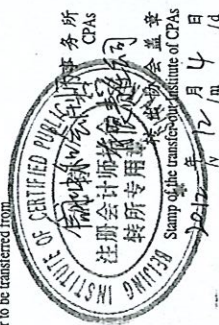 r to be transferred from
事务所
CPAs
BEIJING INSTITUTE OF CERTIFIED PUBLIC
注册会计师
转所专用章
协会盖章
Stamp of the transfer-out Institute of CPAs
2012 年 12 月 4 日
/y /m /d